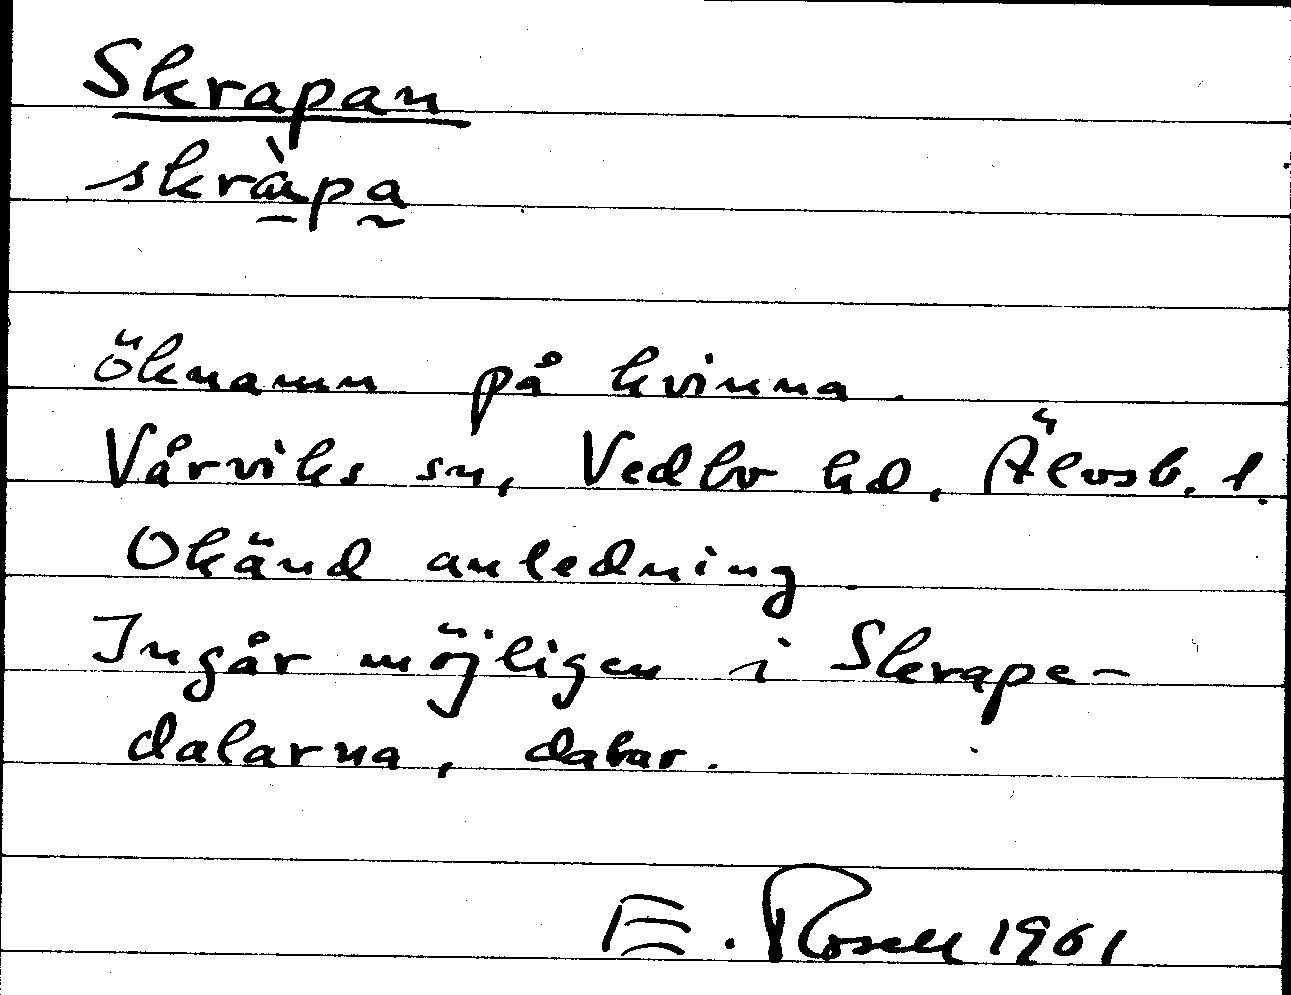 Skrapan
skràpa
öknamn på kvinna.
Vårviks sn, Vedbo hd, Älvsb. l.
Okänd anledning.
Ingår möjligen i Skrape-
dalarna, dalar.
E. Rosell 1961